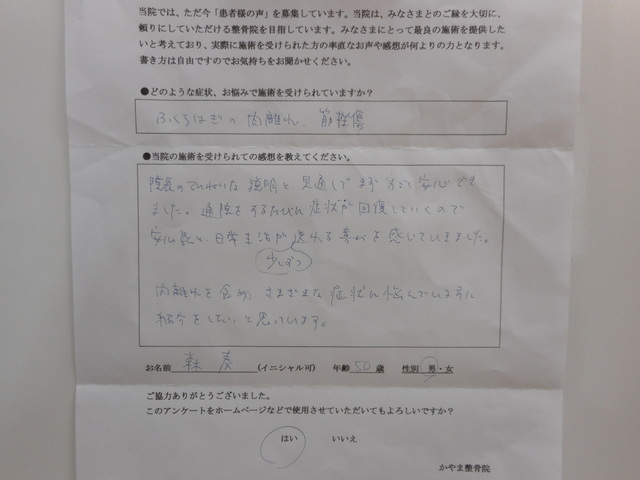 当院では、ただ今「患者様の声」を募集しています。当院は、みなさまとのご縁を大切に、
頼りにしていただける整骨院を目指しています。みなさまにとって最良の施術を提供した
いと考えており、実際に施術を受けられた方の率直なお声や感想が何よりの力となります。
書き方は自由ですのでお気持ちをお聞かせください。
●どのような症状、お悩みで施術を受けられていますか?
ふくらはぎの肉離れ、筋挫傷
●当院の施術を受けられての感想を教えてください。
院長のていねいな説明と見通しでまずすごく安心でき
ました。通院をするたびに症状が回復していくので
安心感と、日常生活が送れる喜びを感じていきました。
少しずつ
肉離れを含め、さまざまな症状に悩んでいる方に
紹介をしたいと思っています。
お名前 森 奏 (イニシャル可) 年齢 50 歳 性別 男・女
ご協力ありがとうございました。
このアンケートをホームページなどで使用させていただいてもよろしいですか?
はい いいえ
かやま整骨院